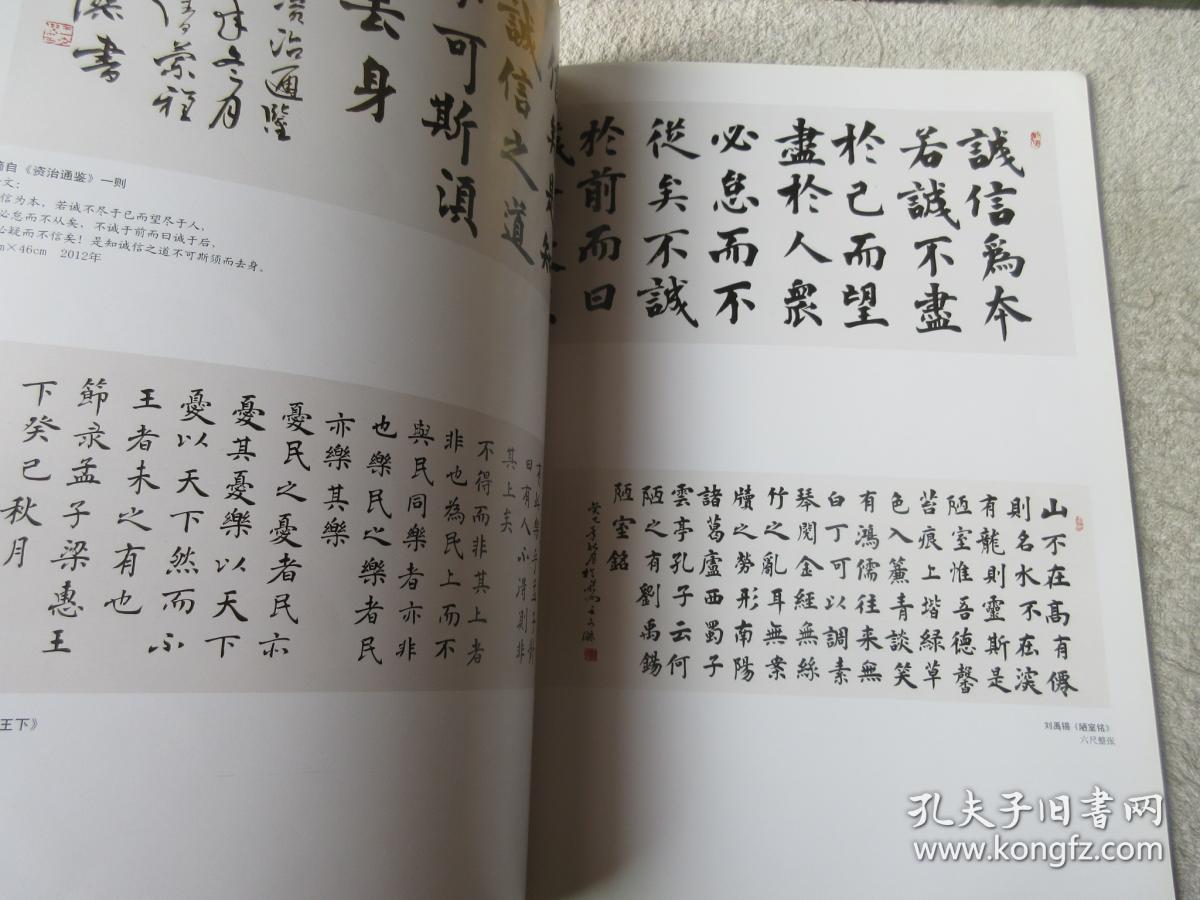 誠信爲本
若誠不盡
於己而望
盡於人衆
必怠而不
從矣不誠
於前而曰
誠信之道
不可斯須
去身
资治通鑒
書
摘自《资治通鉴》一则
信为本，若诚不尽于己而望尽于人，
必怠而不从矣，不诚于前而曰诚于后，
必疑而不信矣！是知诚信之道不可斯须而去身。
×46cm 2012年
山不在高有僊
則名水不在深
有龍則靈斯是
陋室惟吾德馨
苔痕上堦緑草
色入簾青談笑
有鴻儒往来無
白丁可以調素
琴閲金經無絲
竹之亂耳無案
牘之勞形南陽
諸葛廬西蜀子
雲亭孔子云何
陋之有劉禹錫
陋室銘
刘禹锡《陋室铭》
六尺整张
曰有人不得則非
其上矣
不得而非其上者
非也為民上而不
與民同樂者亦非
也樂民之樂者民
亦樂其樂
憂民之憂者民亦
憂其憂樂以天下
憂以天下然而不
王者未之有也
節录孟子梁惠王
下癸巳秋月
王下》
孔夫子旧书网
www.kongfz.com